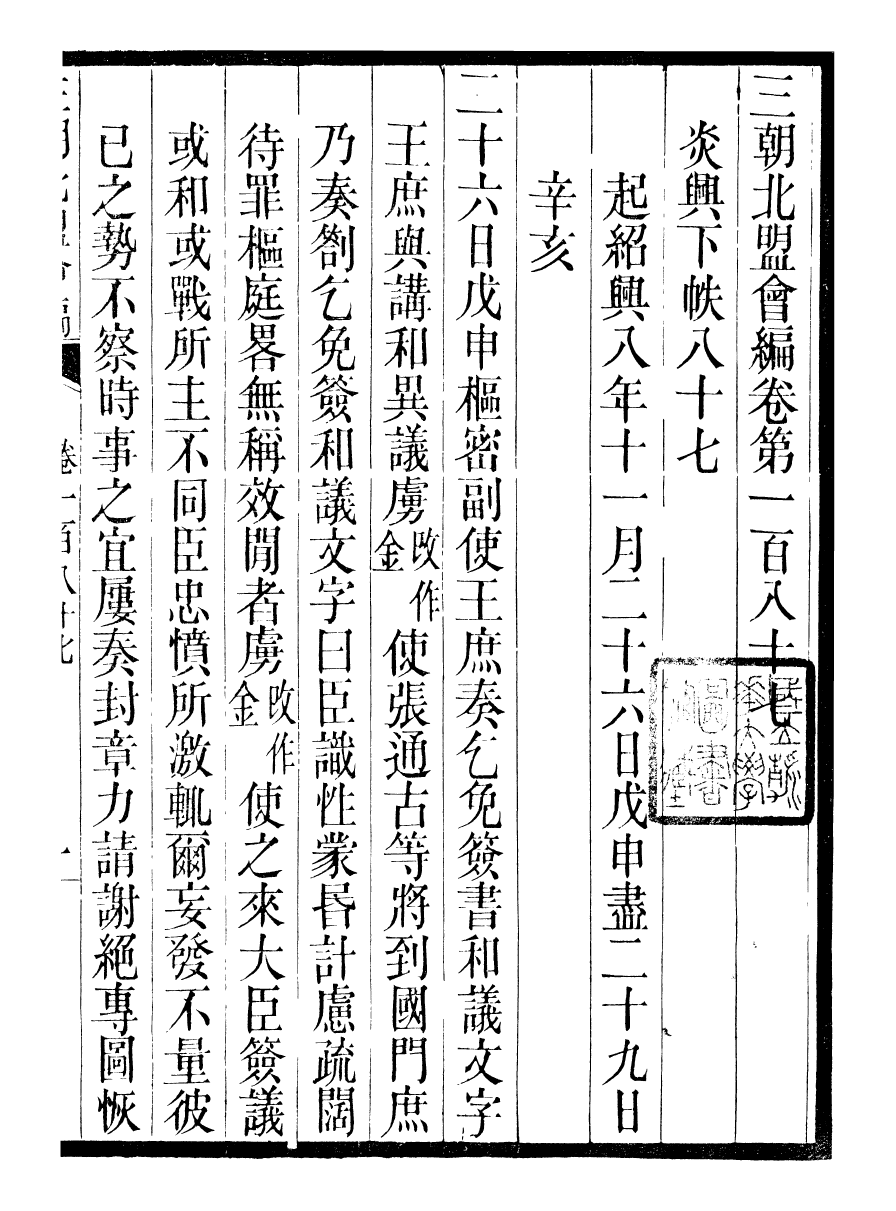 三朝北盟會編卷第一百八十七
炎興下帙八十七
起紹興八年十一月二十六日戊申盡二十九日
辛亥
二十六日戊申樞密副使王庶奏乞免簽書和議文字
王庶與講和異議虜改作金使張通古等將到國門庶
乃奏劄乞免簽和議文字曰臣識性蒙昬計慮疏闊
待罪樞庭畧無稱效閒者虜改作金使之來大臣簽議
或和或戰所主不同臣忠憤所激輒爾妄發不量彼
已之勢不察時事之宜屢奏封章力請謝絕專圖恢
三朝北盟會編
卷一百八十七
一